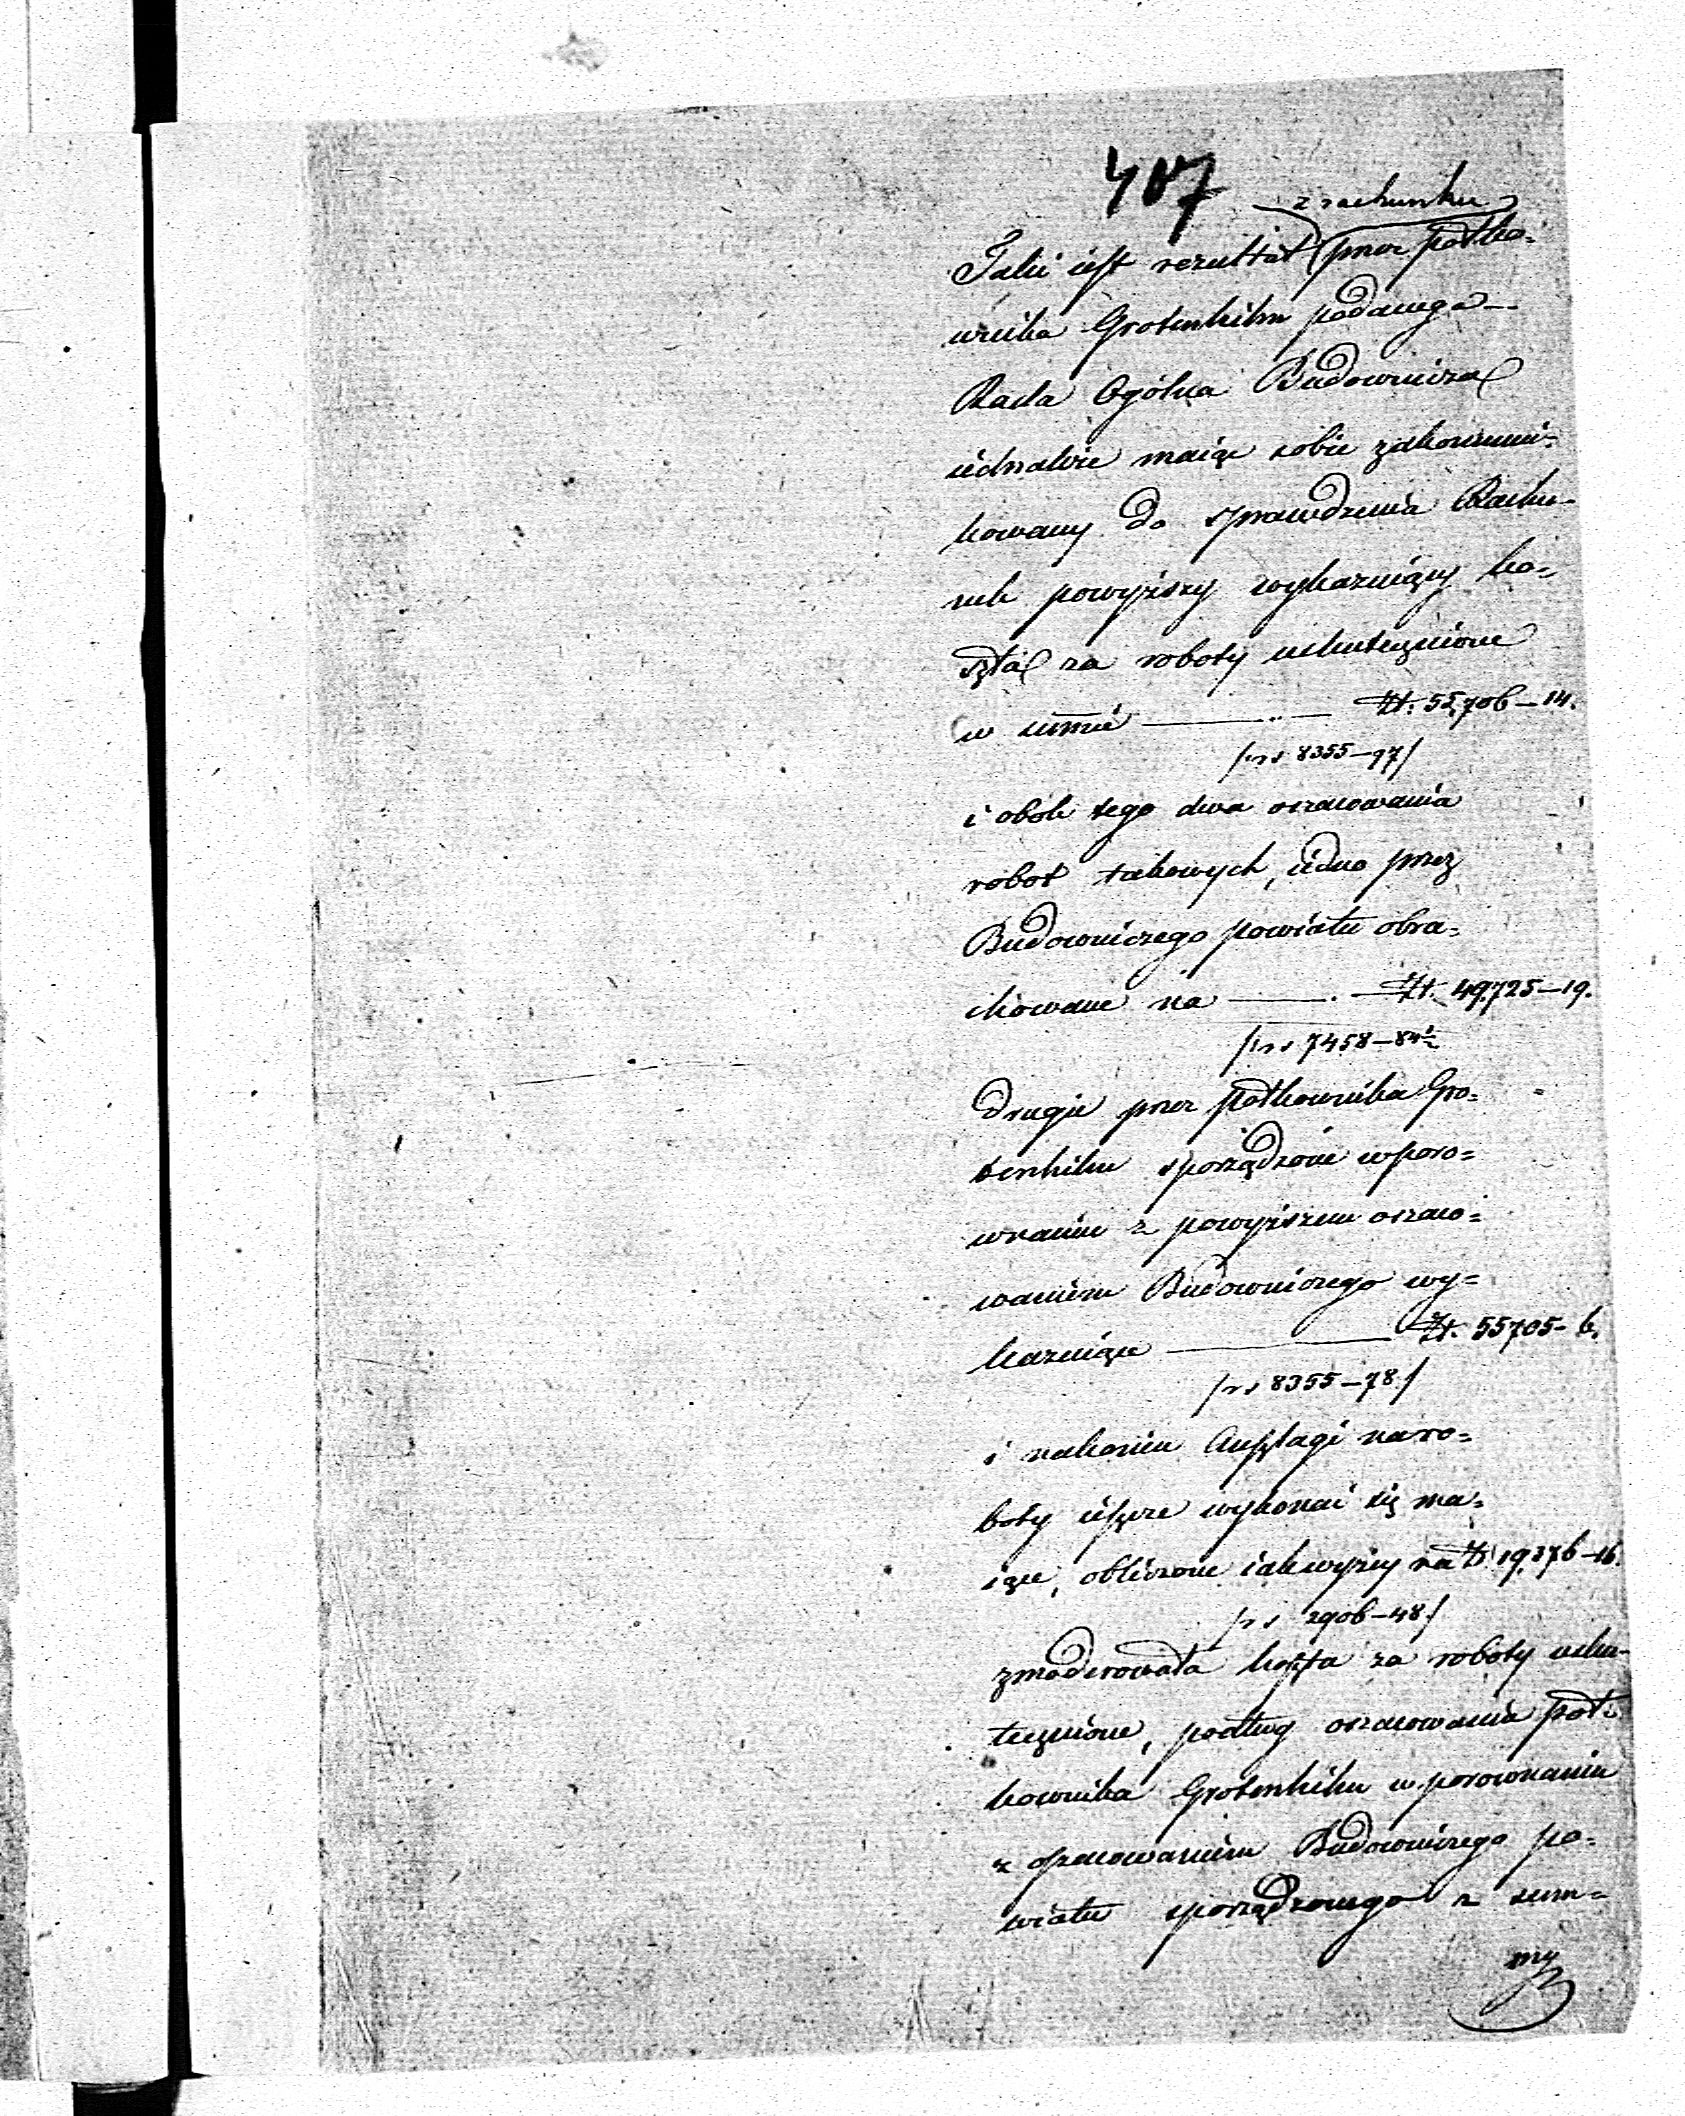 407
z rachunku
Taki iest rezultat przez Pułko=
wnika Grotenhilm podanego —
Rada Ogólna Budownicza
iednakże maiąc sobie zakommuni=
kowany do sprawdzenia Rachu-
nek powyższy wykazuiący ko=
szta za roboty uskutecznione
w summie —— Zł. 55,706—14.
/rs 8355—97/
i obok tego dwa oszacowania
robot takowych, iedno przez
Budowniczego powiatu obra=
chowane na —— Zł. 49,725—19.
/rs 7458—84½
drugie przez Pułkownika Gro=
tenhilm sporządzone w poro=
wnaniu z powyższem oszaco=
waniem Budowniczego wy=
kazuiące —— Zł. 55705—6.
/rs 8355—78/
i nakoniec Anszlagi na ro=
boty ieszcze wykonać się ma=
iące, obliczone iak wyżey na Zł 19,376—16.
/rs 2906—48/
zmoderowała koszta za roboty usku-
tecznione, podług oszacowania Puł=
kownika Grotenhilm w porownaniu
z oszacowaniem Budowniczego po=
wiatu sporządzonego z sum=
my